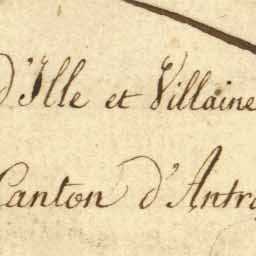 d'Ille et Villaine
Canton d'Antra